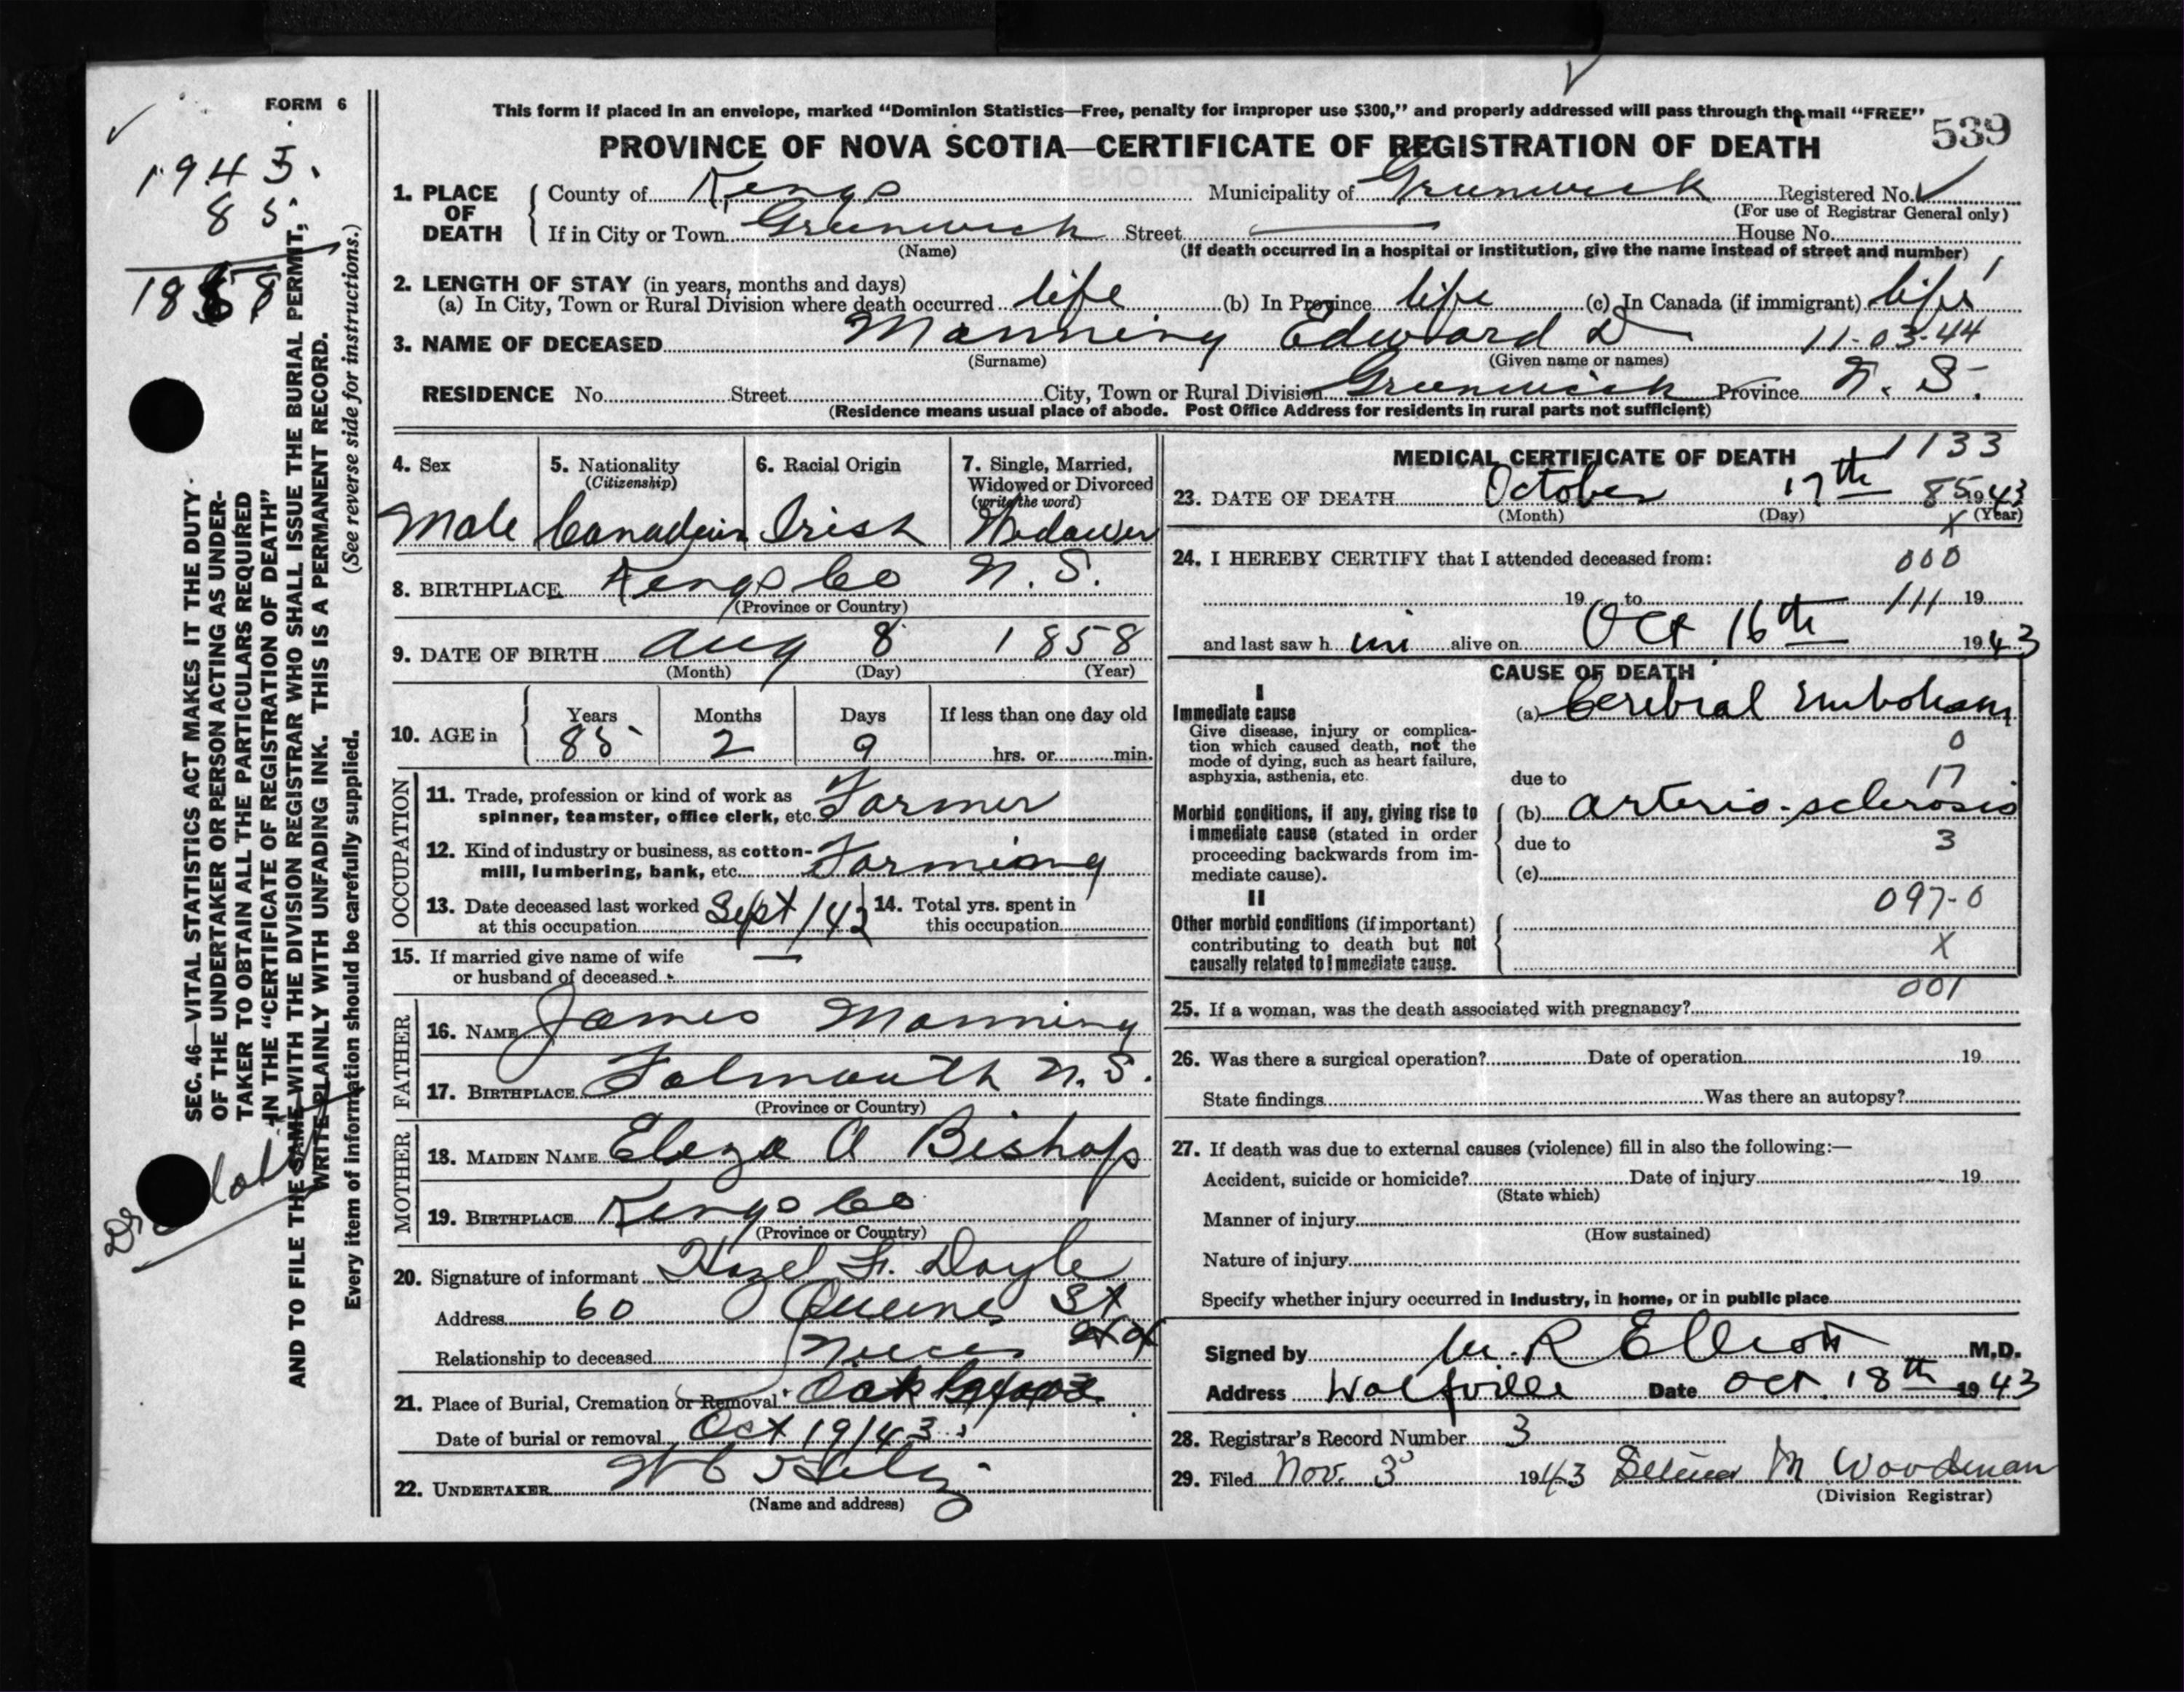 FORM 6
This form if placed in an envelope, marked “Dominion Statistics—Free, penalty for improper use $300,” and properly addressed will pass through the mail “FREE”
PROVINCE OF NOVA SCOTIA—CERTIFICATE OF REGISTRATION OF DEATH
539
1943.
85.
1858
SEC. 46—VITAL STATISTICS ACT MAKES IT THE DUTY
OF THE UNDERTAKER OR PERSON ACTING AS UNDER-
TAKER TO OBTAIN ALL THE PARTICULARS REQUIRED
IN THE “CERTIFICATE OF REGISTRATION OF DEATH”
AND TO FILE THE SAME WITH THE DIVISION REGISTRAR WHO SHALL ISSUE THE BURIAL PERMIT.
WRITE PLAINLY WITH UNFADING INK. THIS IS A PERMANENT RECORD.
Every item of information should be carefully supplied. (See reverse side for instructions.)
1. PLACE OF DEATH
County of Kings Municipality of Greenwich Registered No.
(For use of Registrar General only)
If in City or Town Greenwich Street House No.
(Name) (If death occurred in a hospital or institution, give the name instead of street and number)
2. LENGTH OF STAY (in years, months and days)
(a) In City, Town or Rural Division where death occurred life (b) In Province life (c) In Canada (if immigrant) life
3. NAME OF DECEASED Manning Edward D 11-03-44
(Surname) (Given name or names)
RESIDENCE No. Street City, Town or Rural Division Greenwich Province N. S.
(Residence means usual place of abode. Post Office Address for residents in rural parts not sufficient)
4. Sex
Male
5. Nationality
(Citizenship)
Canadian
6. Racial Origin
Irish
7. Single, Married,
Widowed or Divorced
(write the word)
Widower
8. BIRTHPLACE Kings Co N. S.
(Province or Country)
9. DATE OF BIRTH Aug 8 1858
(Month) (Day) (Year)
10. AGE in
Years Months Days If less than one day old
85 2 9 hrs. or min.
OCCUPATION
11. Trade, profession or kind of work as
spinner, teamster, office clerk, etc. Farmer
12. Kind of industry or business, as cotton-
mill, lumbering, bank, etc. Farming
13. Date deceased last worked
at this occupation Sept/42
14. Total yrs. spent in
this occupation
15. If married give name of wife
or husband of deceased —
FATHER
16. NAME James Manning
17. BIRTHPLACE Falmouth N.S.
(Province or Country)
MOTHER
18. MAIDEN NAME Eliza A Bishop
19. BIRTHPLACE Kings Co
(Province or Country)
20. Signature of informant Hazel F. Doyle
Address 60 Queen St
Hfx
Relationship to deceased Niece
21. Place of Burial, Cremation or Removal Oak
Date of burial or removal Oct 19/43
22. UNDERTAKER
(Name and address)
MEDICAL CERTIFICATE OF DEATH
1133
23. DATE OF DEATH October 17th 85 1943
(Month) (Day) (Year)
X
24. I HEREBY CERTIFY that I attended deceased from:
000
19 to 111 19
and last saw him alive on Oct 16th 1943
CAUSE OF DEATH
I
Immediate cause
Give disease, injury or complica-
tion which caused death, not the
mode of dying, such as heart failure,
asphyxia, asthenia, etc.
(a) Cerebral Embolism
0
due to 17
Morbid conditions, if any, giving rise to
immediate cause (stated in order
proceeding backwards from im-
mediate cause).
(b) arterio-sclerosis
due to 3
(c)
II
Other morbid conditions (if important)
contributing to death but not
causally related to immediate cause.
097-0
X
001
25. If a woman, was the death associated with pregnancy?
26. Was there a surgical operation? Date of operation 19
State findings Was there an autopsy?
27. If death was due to external causes (violence) fill in also the following:—
Accident, suicide or homicide? Date of injury 19
(State which)
Manner of injury
(How sustained)
Nature of injury
Specify whether injury occurred in industry, in home, or in public place
Signed by M. R Elliott M.D.
Address Wolfville Date Oct. 18th 1943
28. Registrar's Record Number 3
29. Filed Nov. 3 1943 M Woodman
(Division Registrar)